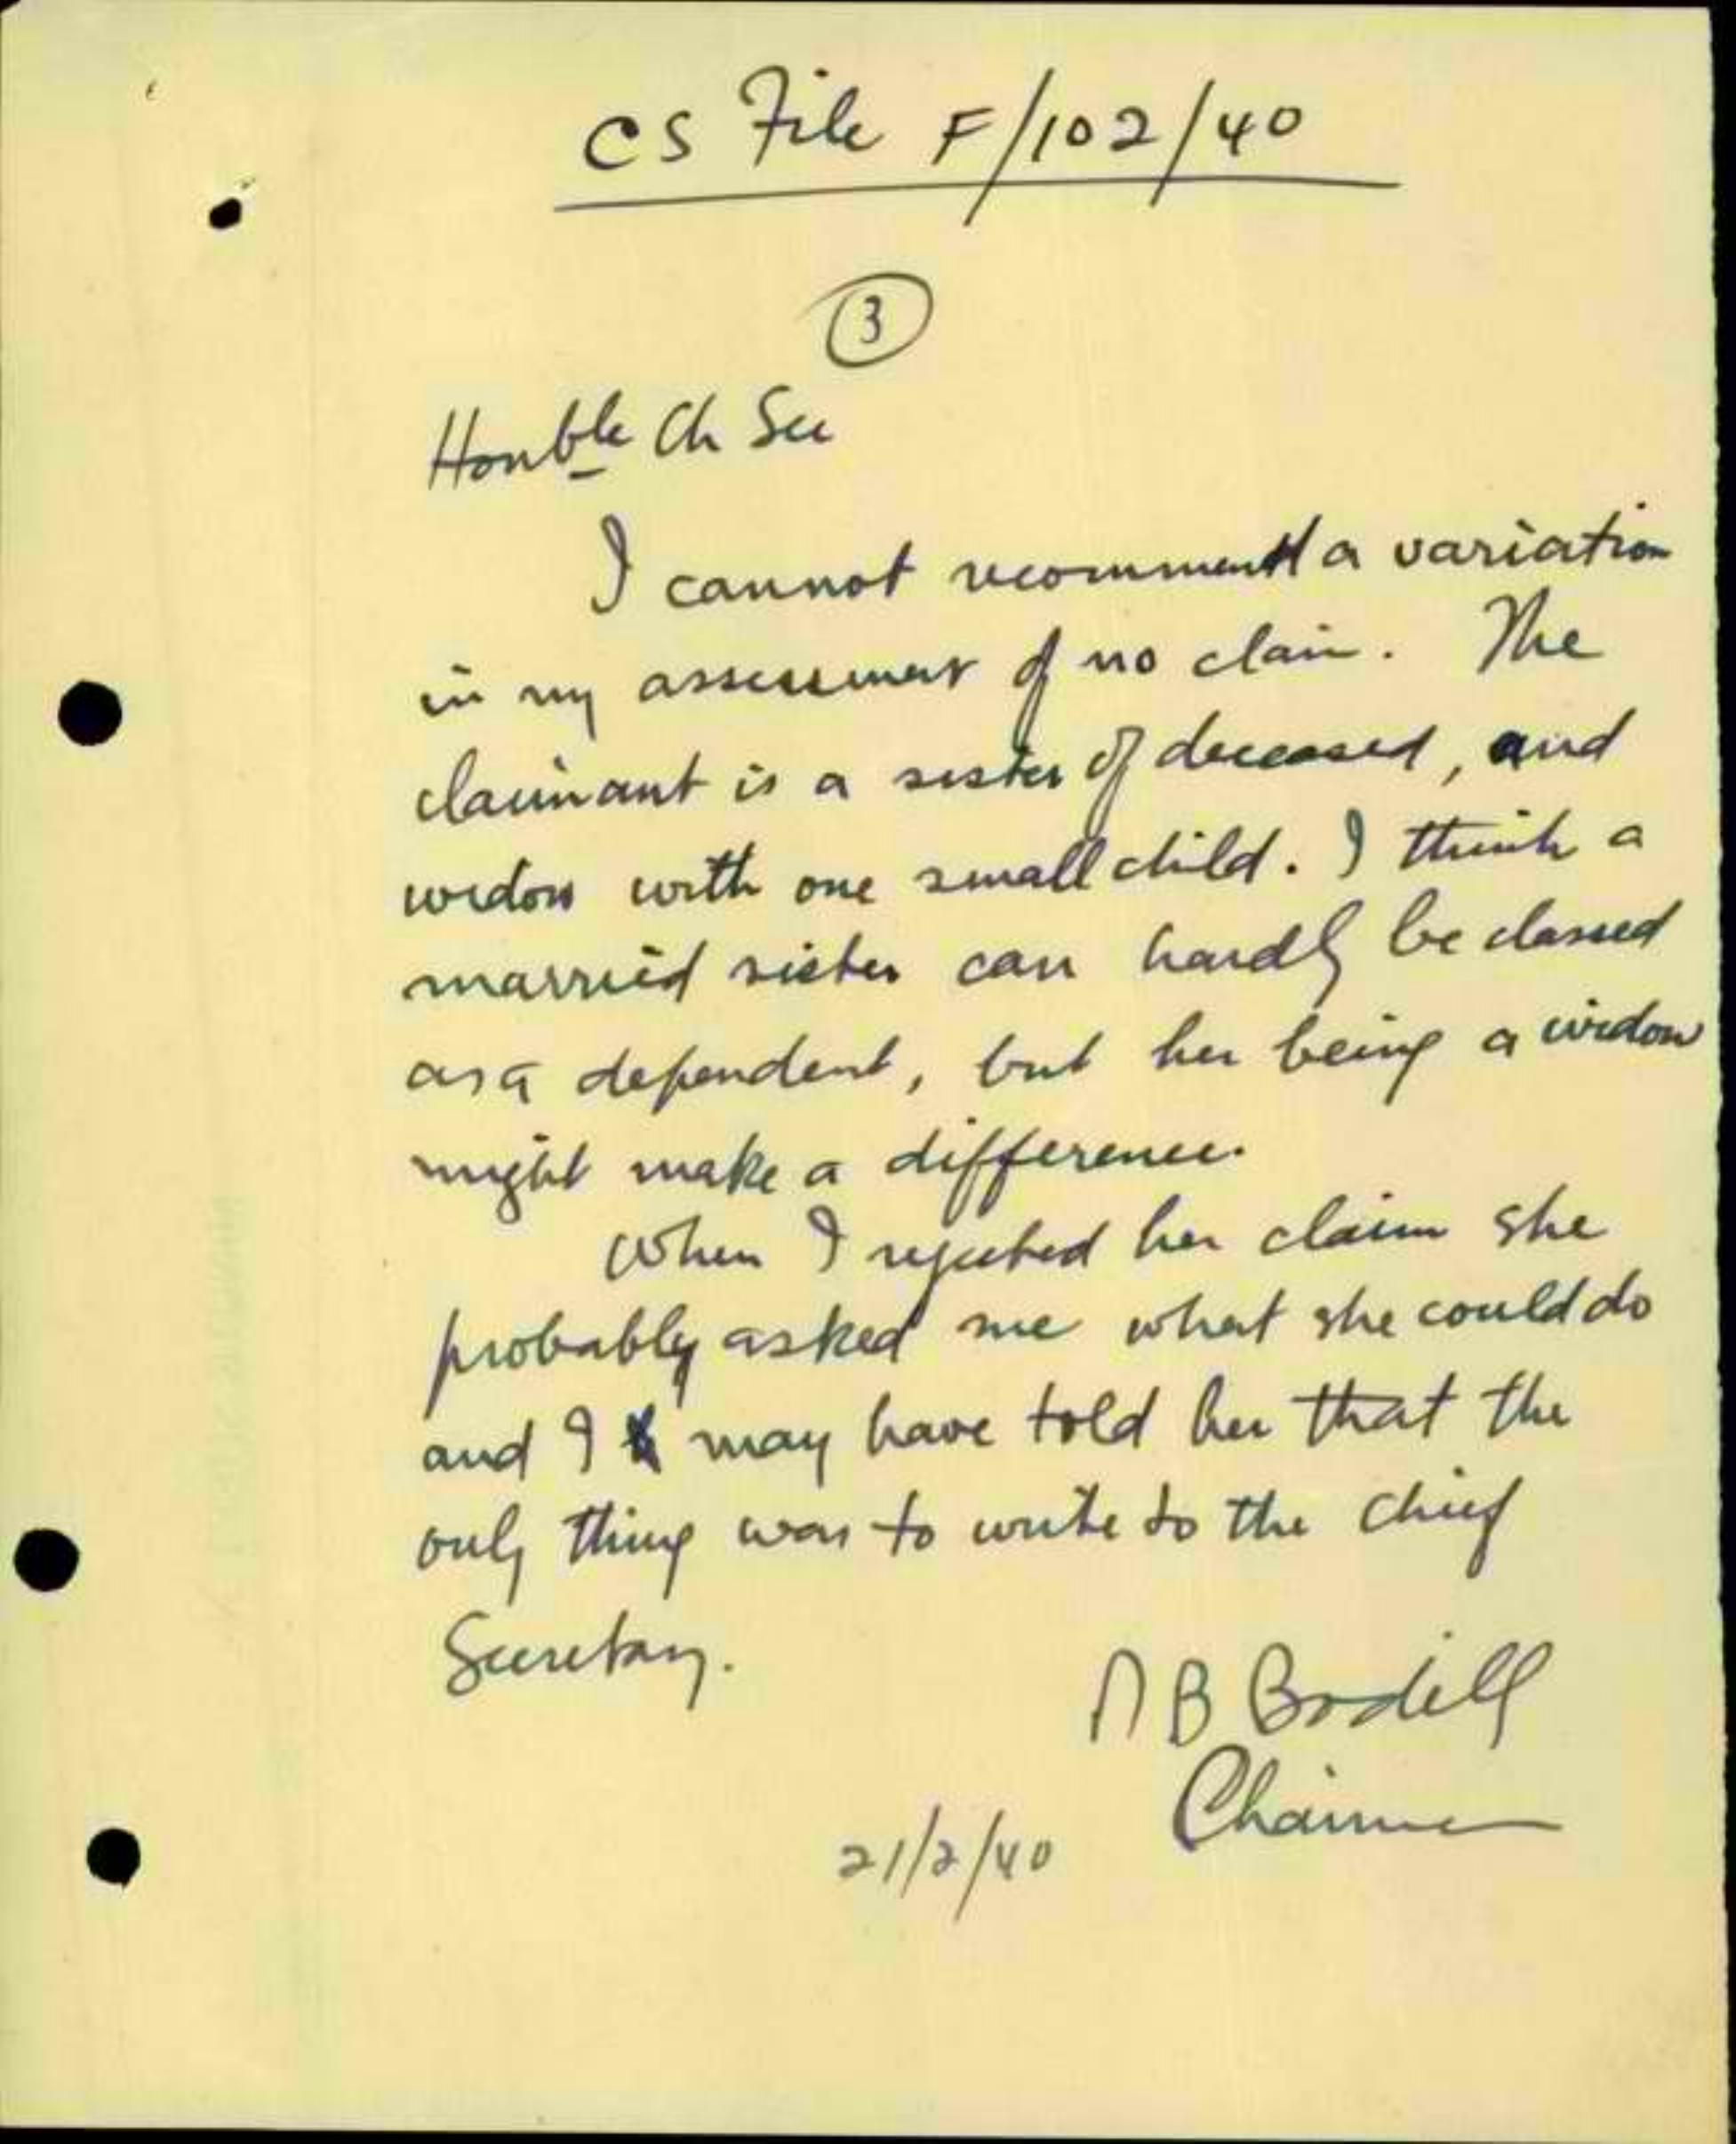 CS File F/102/40
3
Honble Ch Sec
I cannot recommend a variation
in my assessment of no claim. The
claimant is a sister of deceased, and
widow with one small child. I think a
married sister can hardly be classed
as a dependent, but her being a widow
might make a difference.
When I rejected her claim she
probably asked me what she could do
and I may have told her that the
only thing was to write to the Chief
Secretary.
B Bodell
Chairman
21/2/40